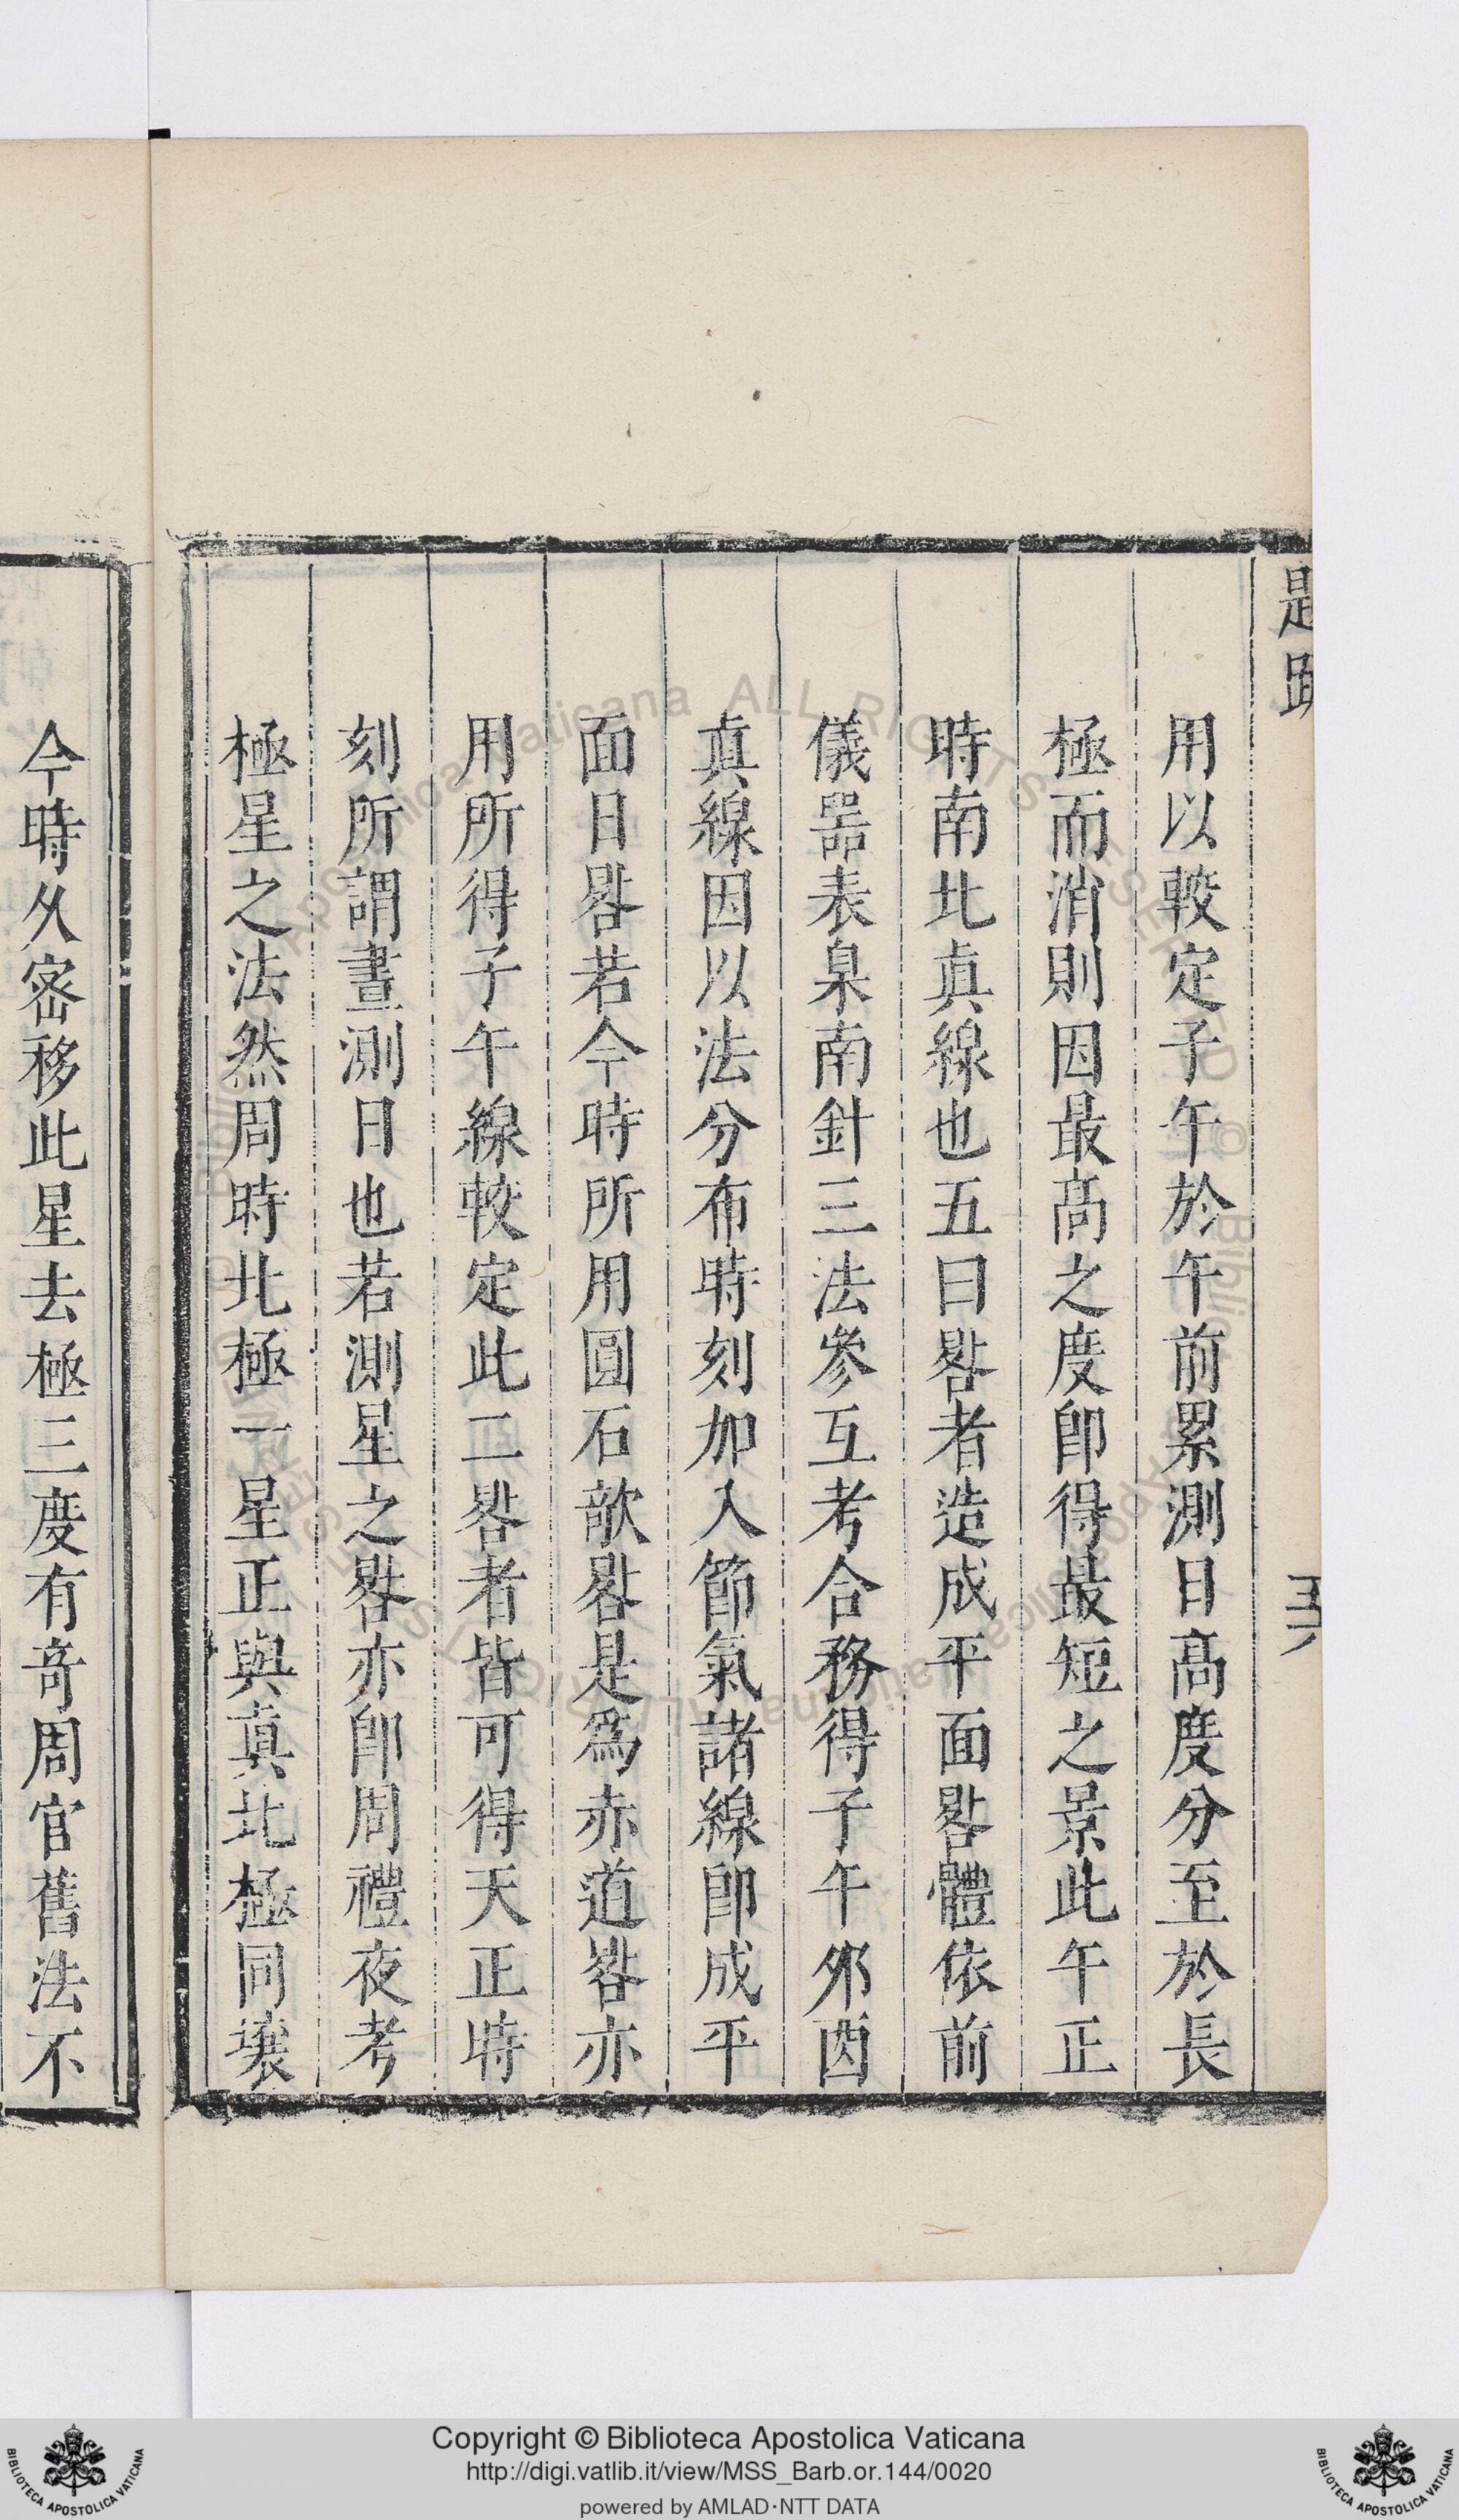 用以較定子午於午前累測日髙度分至於長
極而消則因最髙之度卽得最短之景此午正
時南北眞線也五曰晷者造成平面晷體依前
儀噐表臬南針三法參互考合務得子午夘酉
眞線因以法分布時刻加入節氣諸線卽成平
面日晷若今時所用圓石欹晷是爲赤道晷亦
用所得子午線較定此二晷者皆可得天正時
刻所謂晝測日也若測星之晷亦卽周禮夜考
極星之法然周時北極一星正與眞北極同壤
今時久密移此星去極三度有竒周官舊法不
Copyright © Biblioteca Apostolica Vaticana
http://digi.vatlib.it/view/MSS_Barb.or.144/0020
powered by AMLAD·NTT DATA
BIBLIOTECA APOSTOLICA VATICANA
BIBLIOTECA APOSTOLICA VATICANA